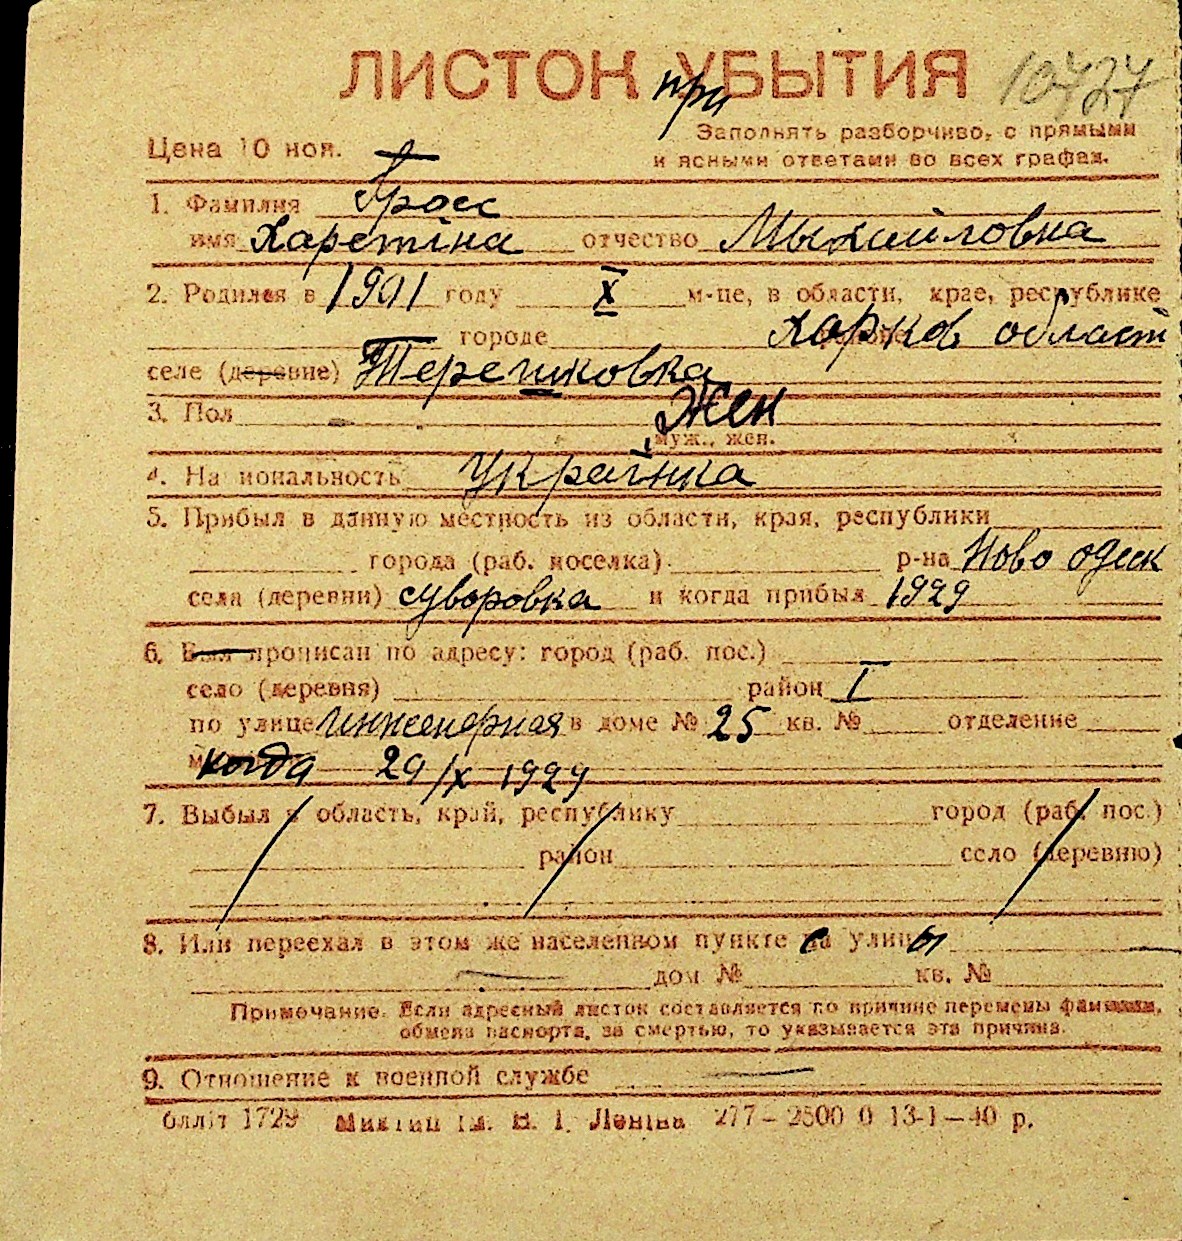 ЛИСТОК УБЫТИЯ
при
10727
Заполнять разборчиво, с прямыми
и ясными ответами во всех графах.
Цена 10 коп.
1. Фамилия Гросс
имя Харетіна отчество Мыхайловна
2. Родился в 1901 году X м-це, в области, крае, республике
городе Харков област
селе (деревне) Терешковка
3. Пол Жен
муж., жен.
4. Национальность Українка
5. Прибыл в данную местность из области, края, республики
города (раб. поселка) р-на Ново одеск
села (деревни) суворовка и когда прибыл 1929
6. Был прописан по адресу: город (раб. пос.)
село (деревня) район I
по улице Инженерная в доме № 25 кв. № отделение
когда 29/X 1929
7. Выбыл в область, край, республику город (раб. пос.)
район село (деревню)
8. Или переехал в этом же населенном пункте с улицы
дом № кв. №
Примечание. Если адресный листок составляется по причине перемены фамилии,
обмена паспорта, за смертью, то указывается эта причина.
9. Отношение к военной службе
1729 ім. В. І. Леніна 277—2500 0 13-1—40 р.